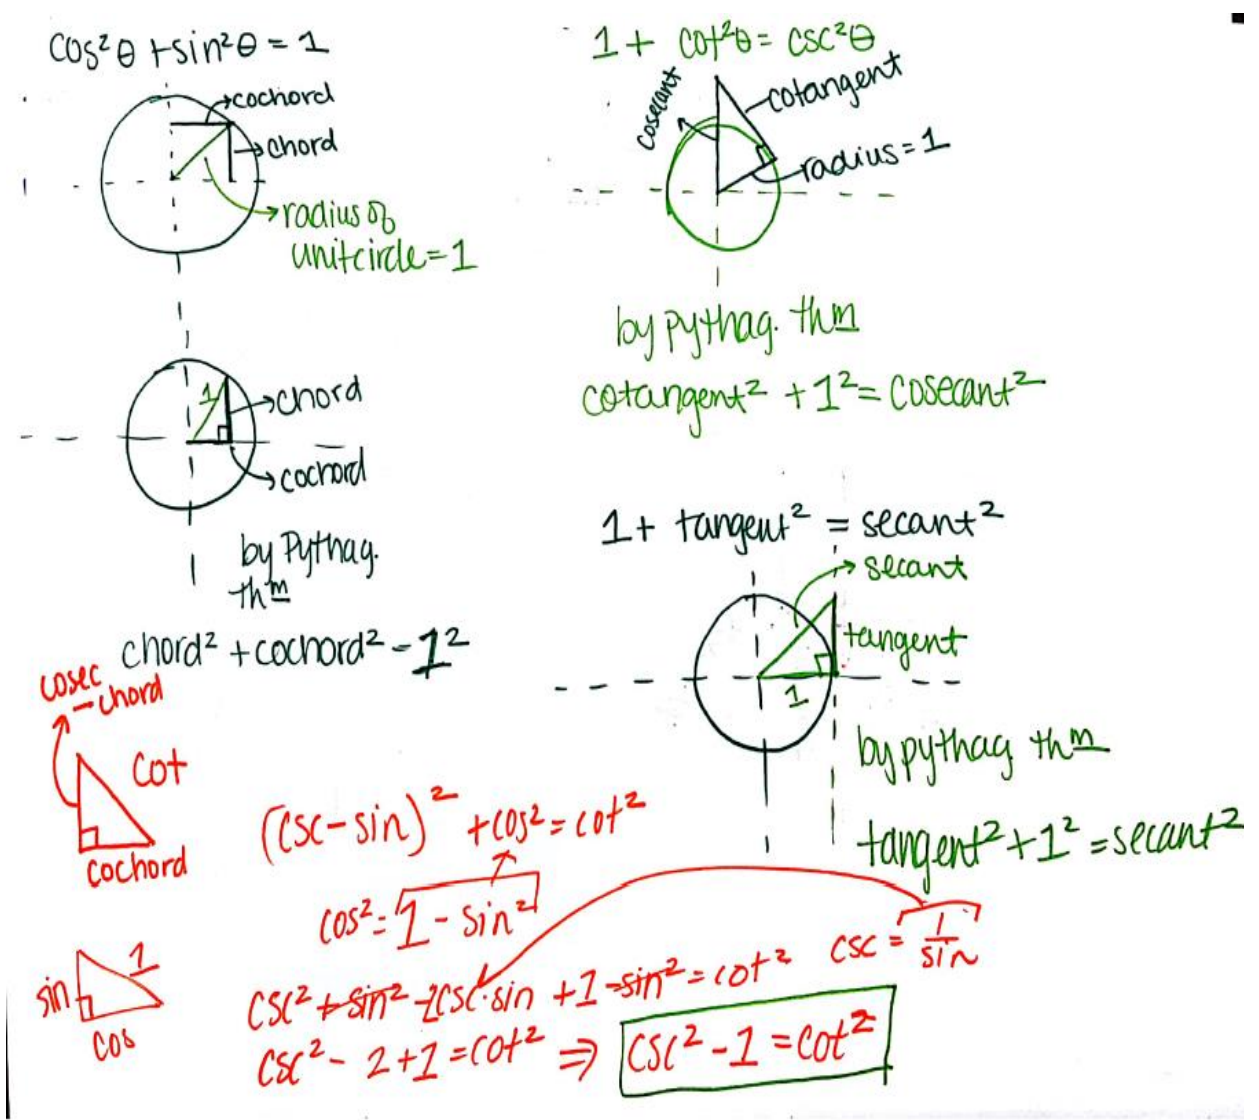 cos²θ + sin²θ = 1
cochord
chord
radius of
unit circle = 1
1
chord
cochord
by Pythag.
thm
chord² + cochord² = 1²
1 + cot²θ = csc²θ
cosecant
cotangent
radius = 1
by pythag. thm
cotangent² + 1² = cosecant²
1 + tangent² = secant²
secant
tangent
1
by pythag thm
tangent² + 1² = secant²
cosec
-chord
cot
cochord
(csc - sin)² + cos² = cot²
cos² = 1 - sin²
csc = 1/sin
sin
1
cos
csc² + sin² - 2csc·sin + 1 - sin² = cot²
csc² - 2 + 1 = cot² ⇒ csc² - 1 = cot²